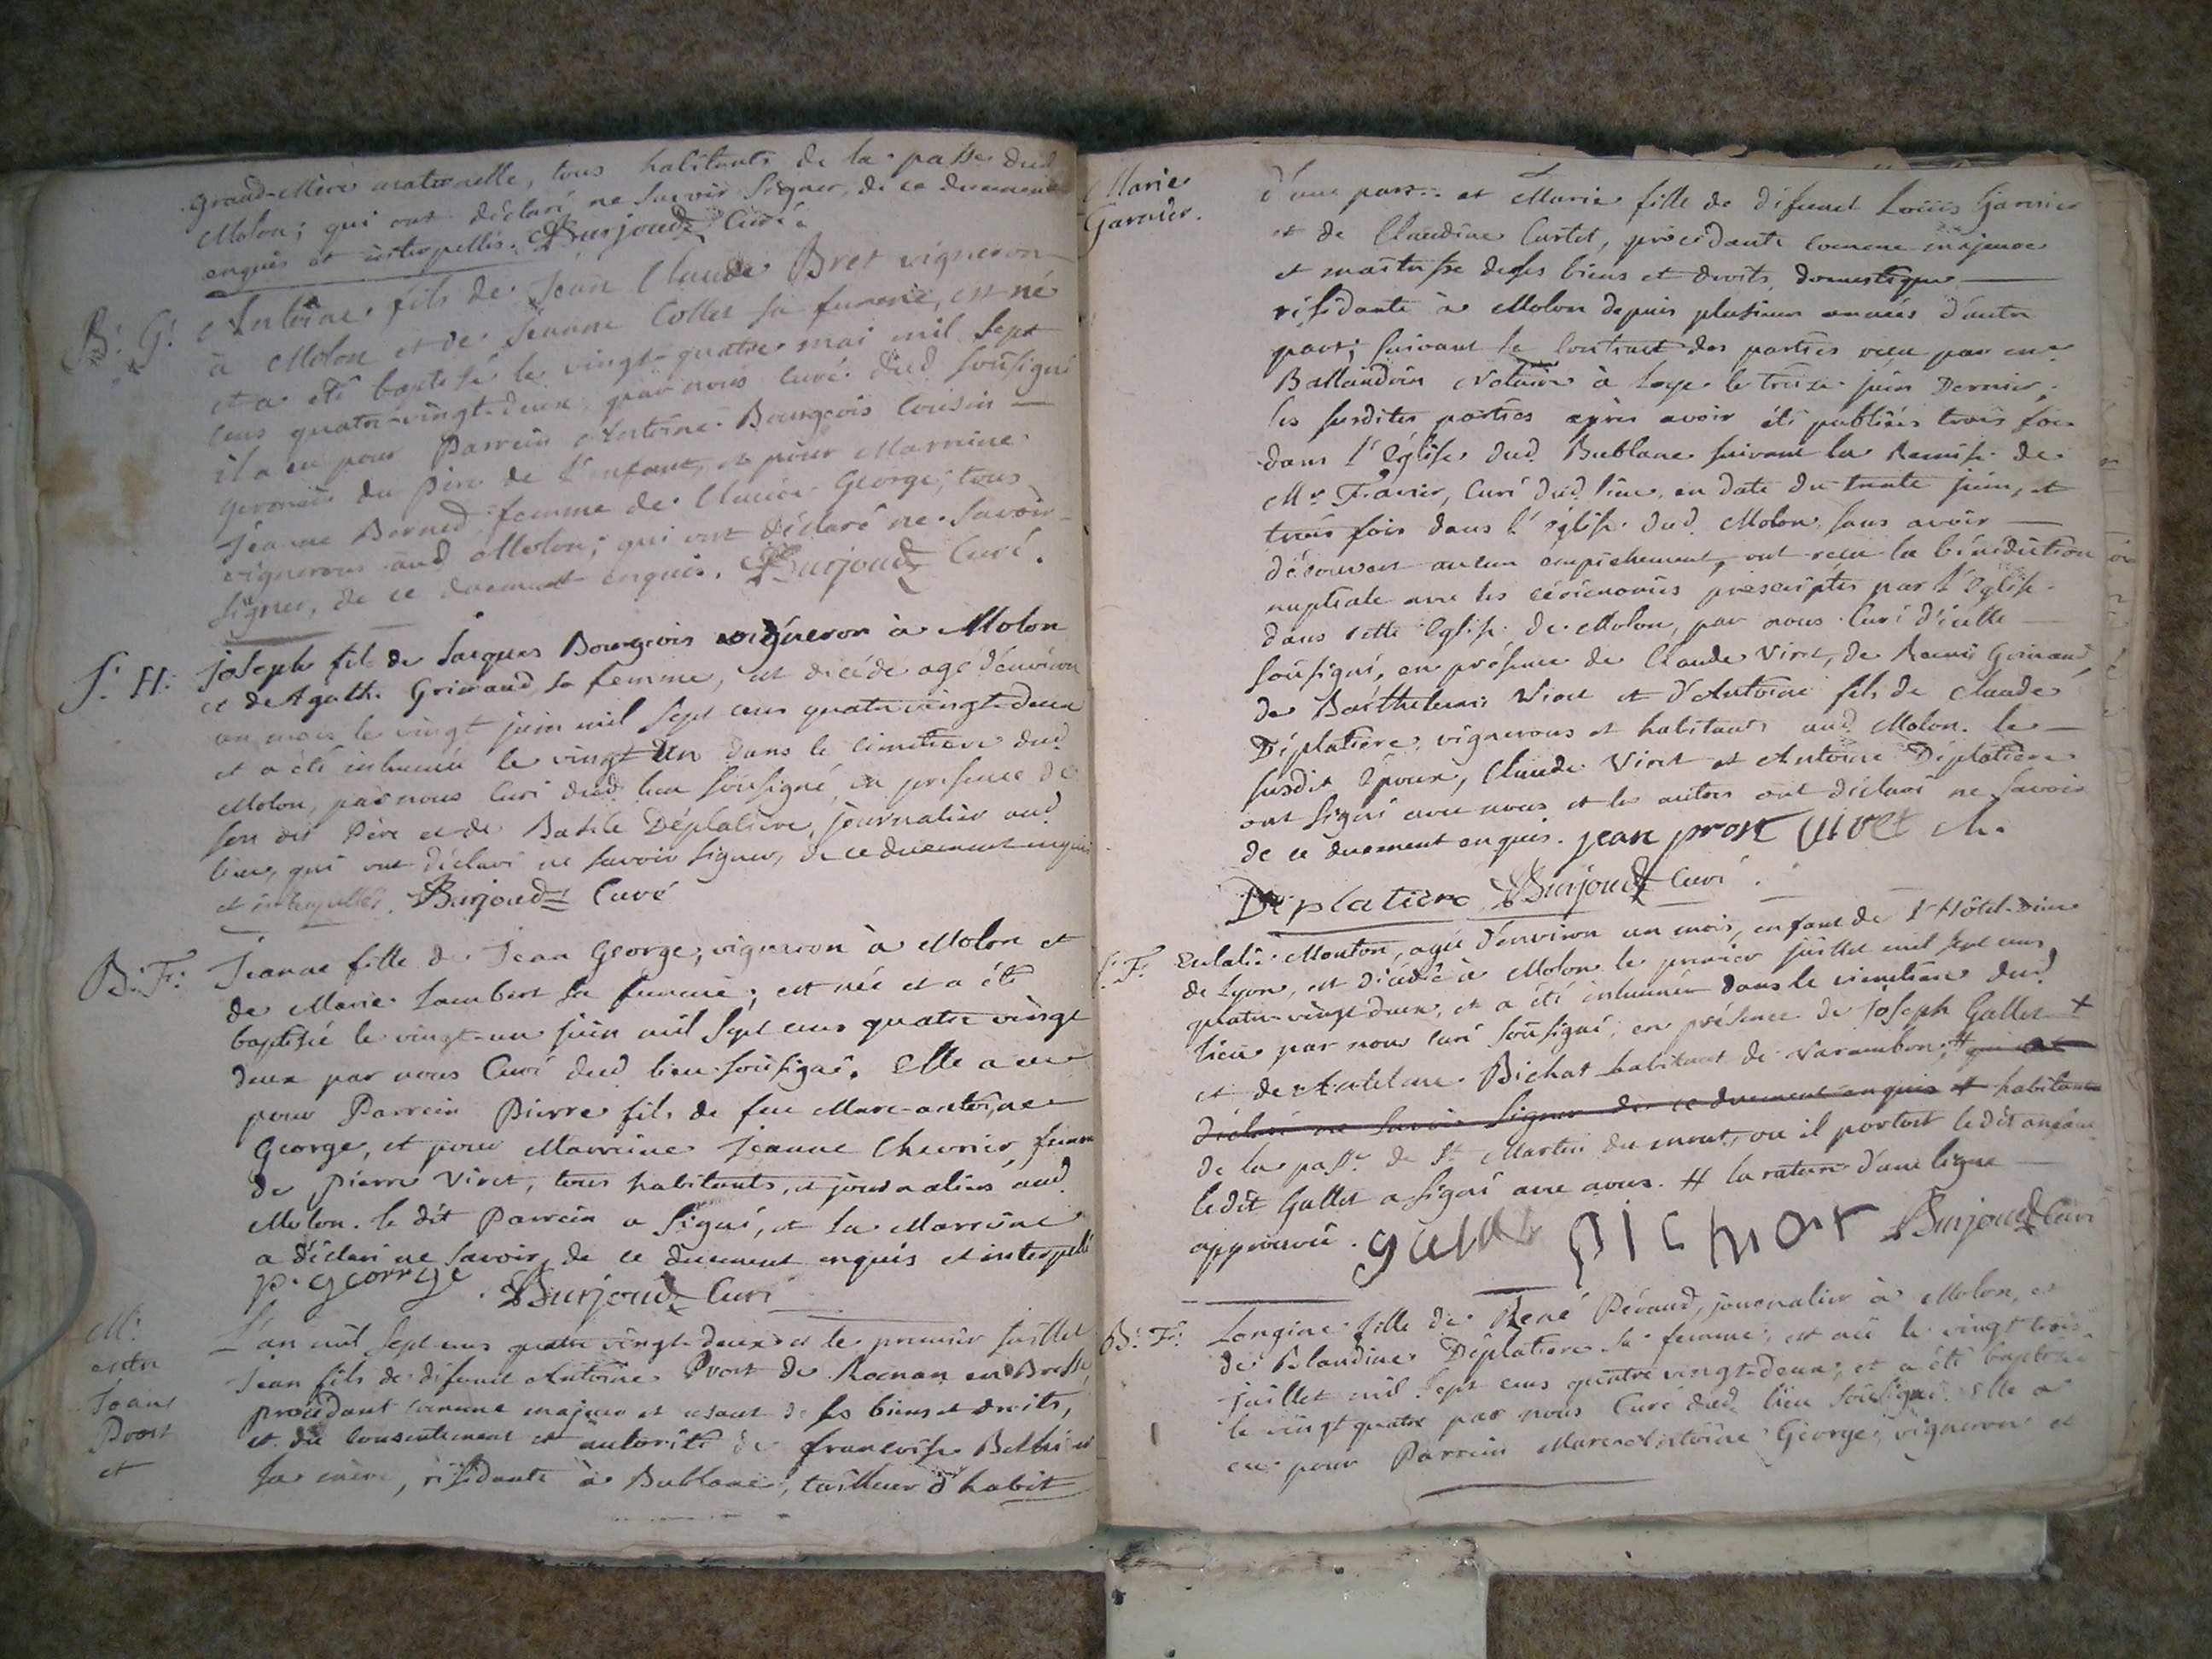 grand-Mère maternelle, tous habitants de la passe dud.
Molon; qui ont déclaré ne savoir signer, de ce duement
enquis et interpellés. Burjoud Curé.
B: G: Antoine fils de Jean Claude Bret vigneron
à Molon et de Jeanne Collet sa femme, est né
et a été baptisé le vingt-quatre mai mil sept
cens quatre-vingt-deux, par nous Curé dud soussigné
il a eu pour Parrein Antoine Bourgeois Cousin
germain du père de l'enfant, et pour Marreine
Jeanne femme de George; tous
vignerons aud Molon; qui ont déclaré ne savoir
signer, de ce duement enquis. Burjoud Curé.
S. H: Joseph fils de Jacques Bourgeois vigneron à Molon
et de Agathe Grimaud sa femme, est décédé agé d'environ
un mois le vingt juin mil sept cens quatre vingt-deux
et a été inhumé le vingt un dans le cimetiere dud.
Molon, par nous Curé dud lieu soussigné, en presence de
son dit Père et de Basile Déplatiere, journalier aud.
lieu, qui ont déclaré ne savoir signer, de ce duement enquis
et interpellés. Burjoud Curé
B: F: Jeanne fille de Jean George, vigneron à Molon et
de Marie Lambert sa femme; est née et a été
baptisée le vingt-un juin mil sept cens quatre vingt
deux par nous Curé dud lieu soussigné. Elle a eu
pour Parrein Pierre fils de feu Marc-antoine
George, et pour Marreine Jeanne Chevrier, femme
de Pierre Viret, tous habitants, et journaliers aud.
Molon. le dit Parrein a signé, et la Marreine
a déclaré ne savoir, de ce duement enquis et interpellé
p. george. Burjoud Curé
M: L'an mil sept cens quatre vingt-deux et le premier juillet
entre Jean fils de défunt Antoine Prost de Roman en Bresse,
Jean procédant comme majeur et usant de ses biens et droits,
Prost et du consentement et autorité de françoise
et sa mère, résidante à Bublane, tailleur d'habit
Marie d'une part: et Marie fille de défunt Loüis Garnier
Garnier. et de Claudine Curtet, procédante comme majeure
et maitresse de ses biens et droits, domestique
résidante à Molon depuis plusieurs années d'autre
part; suivant le contract des parties reçu par me.
Ballandrin Notaire à Loye le treize juin Dernier,
les susdites parties après avoir été publiées trois fois
dans l'église dud. Bublane suivant la Remise de
Mr Favier, Curé dud. lieu, en date du trente juin, et
trois fois dans l'église dud. Molon, sans avoir
découvert aucun empêchement, ont reçu la bénédiction
nuptiale avec les cérémonies prescriptes par l'Eglise
dans cette Eglise de Molon, par nous Curé d'icelle
soussigné, en présence de Claude Viret, de Remis Grimaud,
de Barthelemi Viret et d'Antoine fils de Claude
Déplatiere, vignerons et habitants aud. Molon. le
susdit Epoux, Claude Viret et Antoine Déplatiere
ont signé avec nous et les autres ont déclaré ne savoir
de ce duement enquis. jean prost Vivet
Déplatière Burjoud Curé.
S: F: Eulalie Mouton, agée d'environ un mois, enfant de l'Hôtel-dieu
de Lyon, est décédée à Molon le premier juillet mil sept cens
quatre-vingt deux, et a été inhumée dans le cimetiere dud.
lieu par nous Curé soussigné, en présence de Joseph Gallet +
et de Antelme Bichat habitant de Varambon, # qui ont
déclaré ne savoir signer de ce duement enquis + habitant
de la passe de St Martin du mont, ou il portoit le dit enfant
le dit Gallet a signé avec nous. # la rature d'une ligne
approuvée. gallet pichat Burjoud Curé
B: F: Longine fille de René Péraud, journalier à Molon, et
de Blandine Déplatiere sa femme, est née le vingt trois
juillet mil sept cens quatre vingt-deux; et a été baptisée
le vingt quatre par nous Curé dud. lieu soussigné. elle a
eu pour Parrein Marc Antoine George, vigneron et